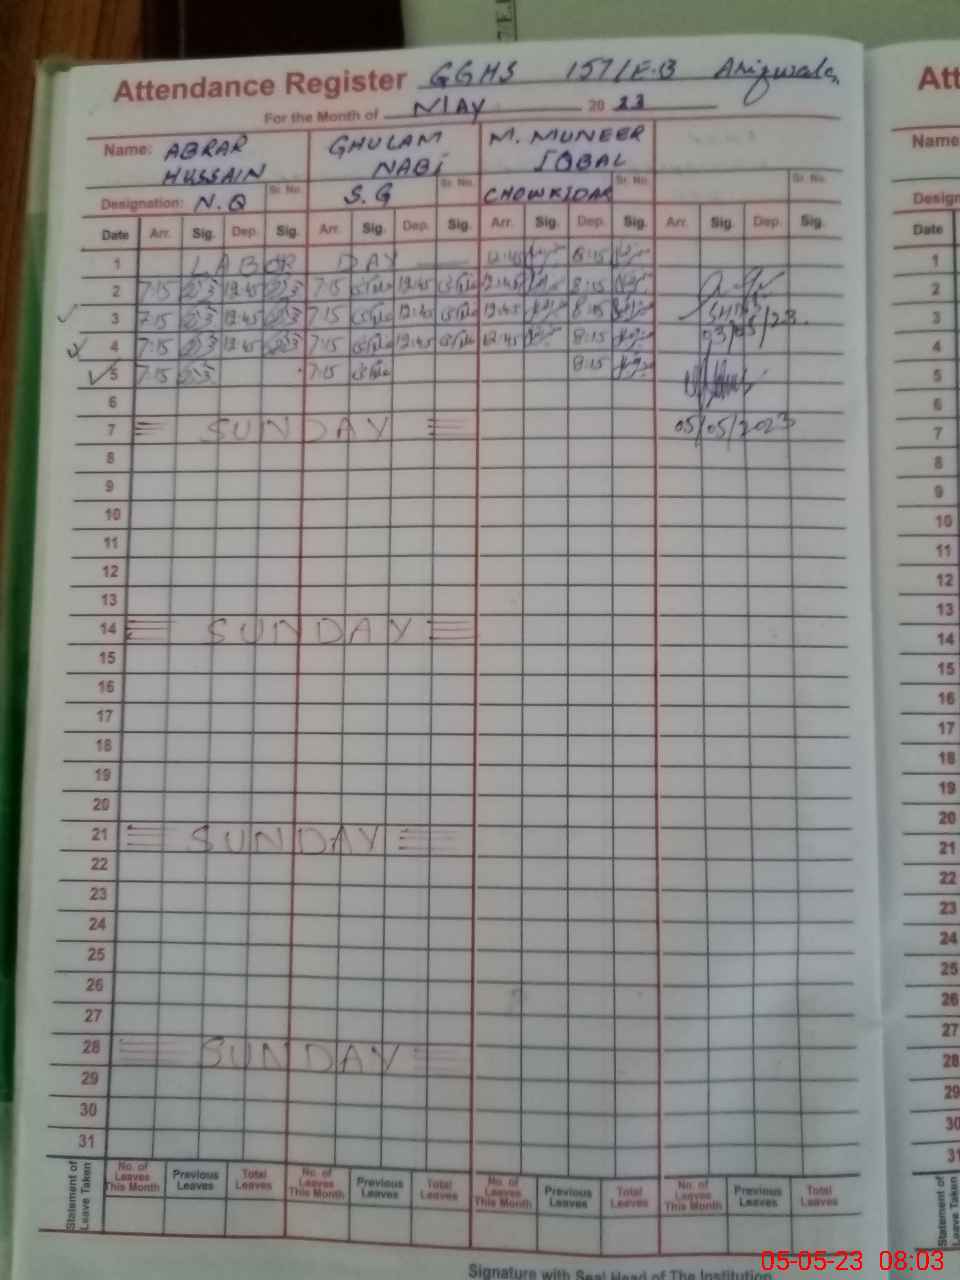 Attendance Register GGHS 157/E.B Arifwala Att
For the Month of MAY 20 23
Name: ABRAR HUSSAIN GHULAM NABI M. MUNEER IQBAL Name
Sr. No. Sr. No. Sr. No. Sr. No.
Designation: N.Q S.G CHOWKIDAR Design
Date Arr. Sig. Dep. Sig. Arr. Sig. Dep. Sig. Arr. Sig. Dep. Sig. Arr. Sig. Dep. Sig. Date
1 LABOR DAY 12:45 8:15 1
2 7:15 12:45 7:15 12:45 12:45 8:15 2
3 7:15 12:45 7:15 12:45 12:45 8:15 3
4 7:15 12:45 7:15 12:45 12:45 8:15 03/05/23 4
5 7:15 7:15 8:15 5
6 6
7 SUNDAY 05/05/2023 7
8 8
9 9
10 10
11 11
12 12
13 13
14 SUNDAY 14
15 15
16 16
17 17
18 18
19 19
20 20
21 SUNDAY 21
22 22
23 23
24 24
25 25
26 26
27 27
28 SUNDAY 28
29 29
30 30
31 31
Statement of Leave Taken No. of Leaves This Month Previous Leaves Total Leaves No. of Leaves This Month Previous Leaves Total Leaves No. of Leaves This Month Previous Leaves Total Leaves No. of Leaves This Month Previous Leaves Total Leaves Statement of Leave Taken
Signature with Seal Head of The Institution
05-05-23 08:03